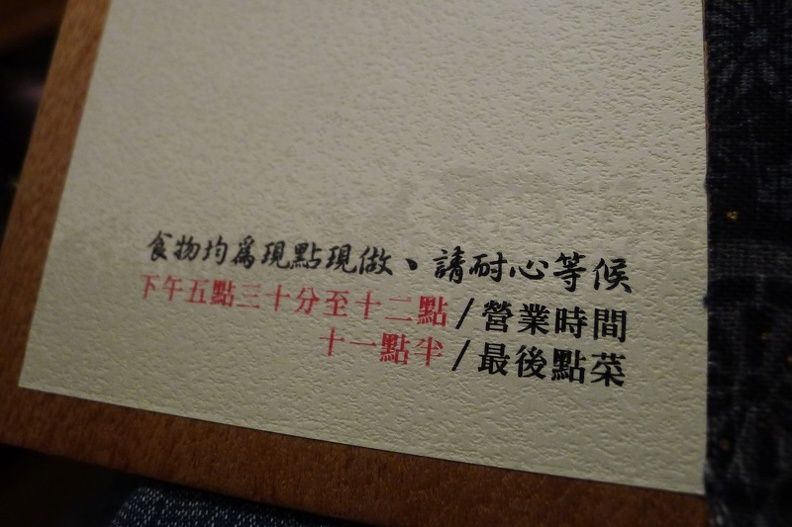 食物均為現點現做、請耐心等候
下午五點三十分至十二點/營業時間
十一點半/最後點菜